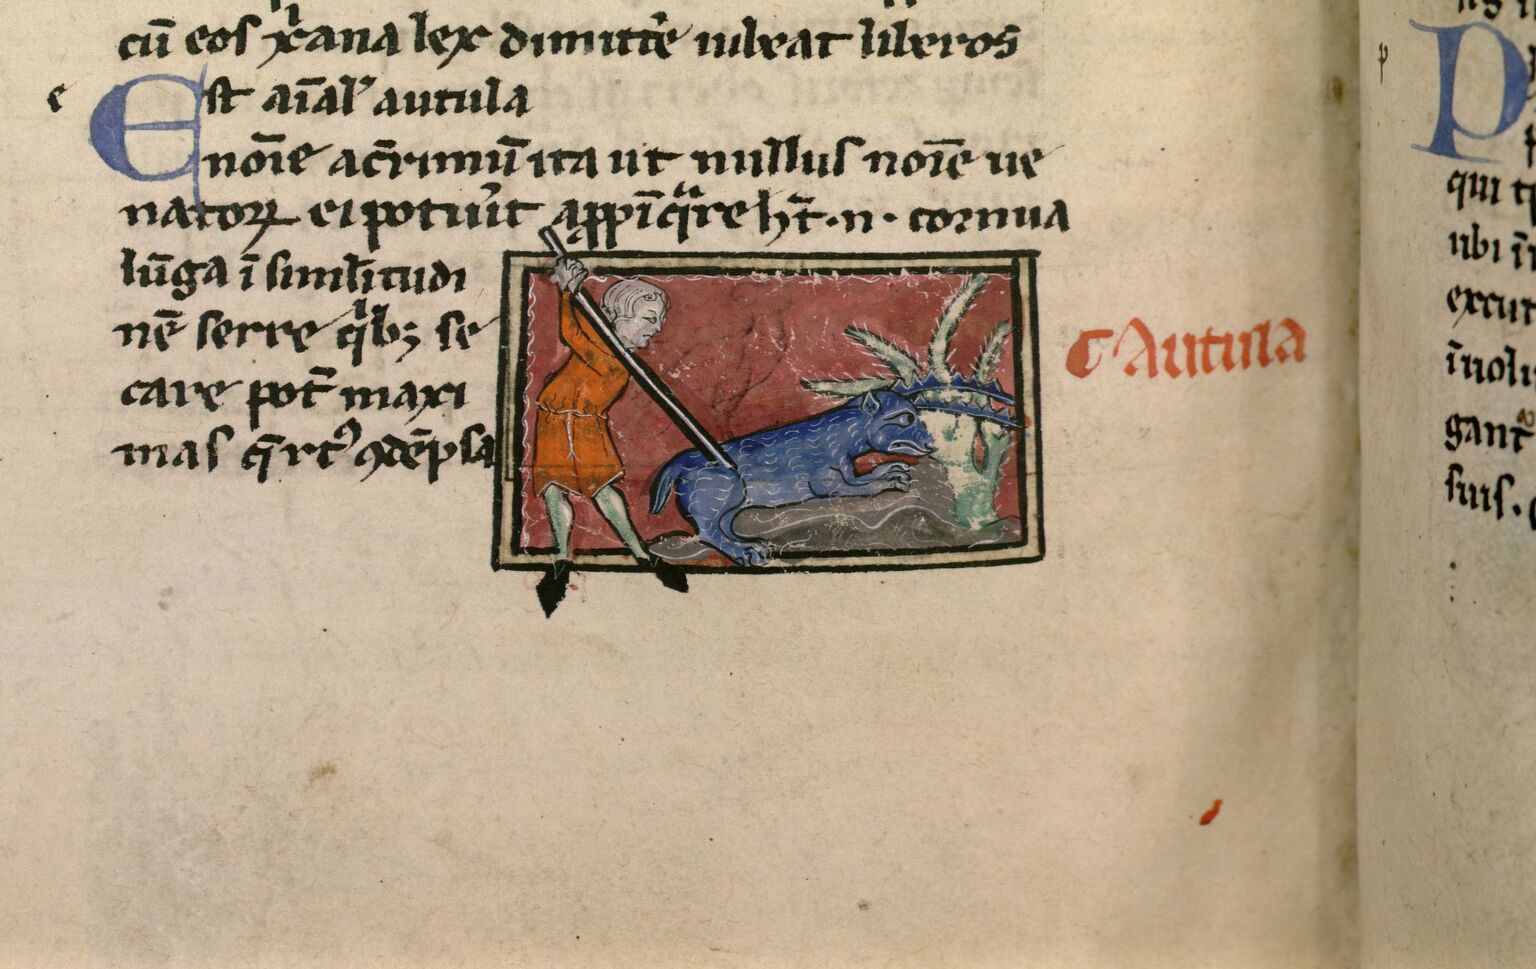 cū eos xp̄ana lex dimittē iubeat liberos
e
Est aīal' autula
noīe acr̄imū ita ut nullus noīe ue
natoꝝ ei potuit appīqͣre hr̄t · n · cornua
lūga ī similitudi
nē serre qͥbꝫ se
care pot̄ maxi
mas qͣrcꝰ ꝯdēpsa
Autula
p
P
qui
ubi
excut
īuolu
gant̄
suis .